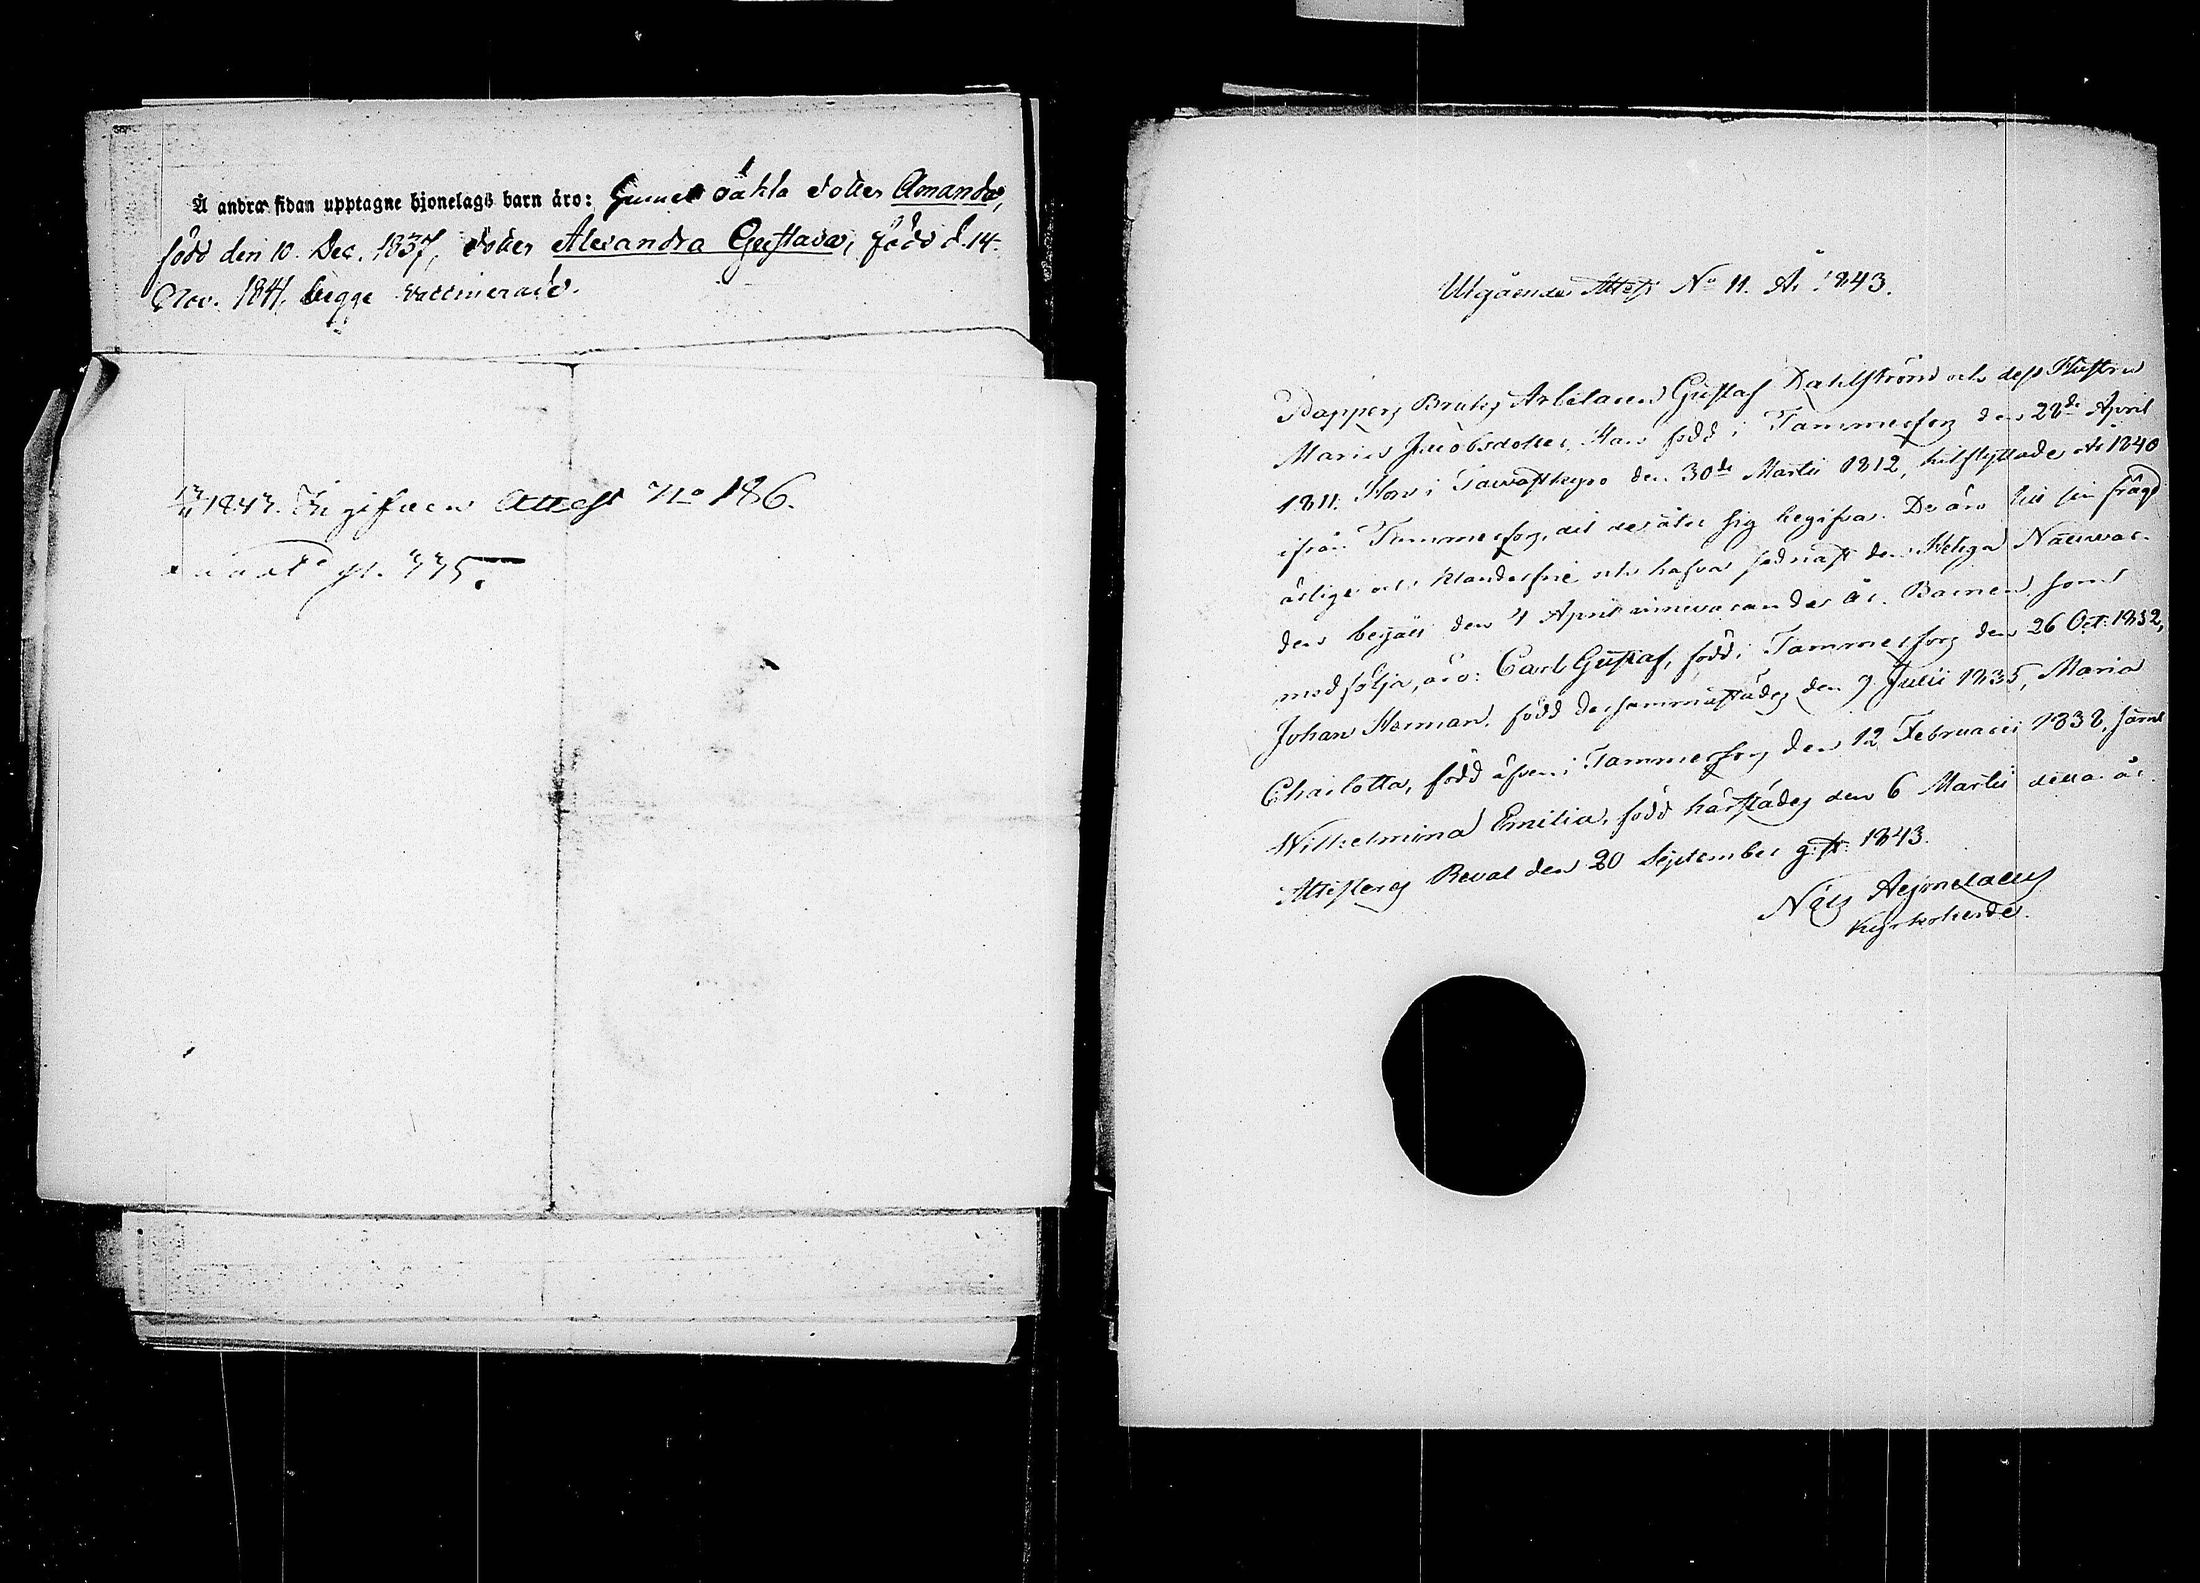 Å andra sidan upptagne hjonelags barn äro: äkta dotter Amanda,
född den 10. Dec. 1837, dotter Alexandra Gustava, född d. 14.
Nov. 1841, begge vaccinerade.
13/11 1843. Ingifven Attest No 186.
pl. 335.
Utgående Attest No 11. År 1843.
Pappers Bruks Arbetaren Gustaf Dahlström och dess Hustru
Maria Jacobsdotter, Han född i Tammerfors den 28de April
1811. Hon i Tawastkyro den 30de Martii 1812, hitflyttade År 1840
ifrån Tammerfors, dit de åter sig begifva. De äro till sin frägd
ärlige och klanderfrie och hafva sednast den Heliga Nattvar-
den begått den 4 April innevarande år. Barnen, som
medfölja, äro: Carl Gustaf, född i Tammerfors den 26 Oct. 1832,
Johan Herman, född dersammastädes den 9 Julii 1835, Maria
Charlotta, född äfven i Tammerfors den 12 Februarii 1838, samt
Wilhelmina Emilia, född härstädes den 6 Martii detta år.
Attesteras Reval den 20 September g: st: 1843.
Nils Aejmelaeus
Kyrkoherde.